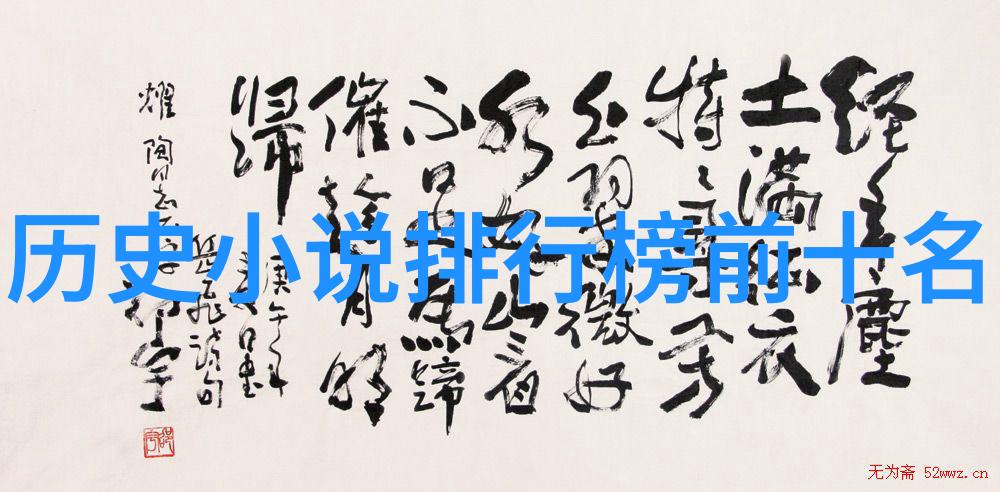 历史小说排行榜前十名
經年塵
土满征衣
特特寻芳
上翠微好
水好山看
不足馬蹄
催趁月明
歸
庚午年
岳飞诗句
无为斋 52wwz.cn